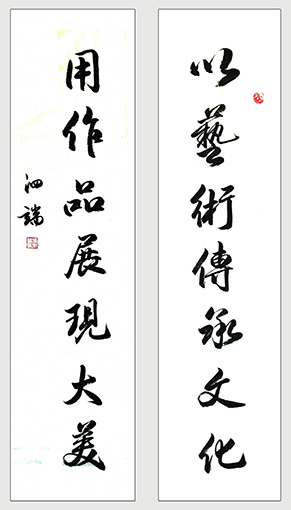 以藝術傳承文化
用作品展現大美
泗端